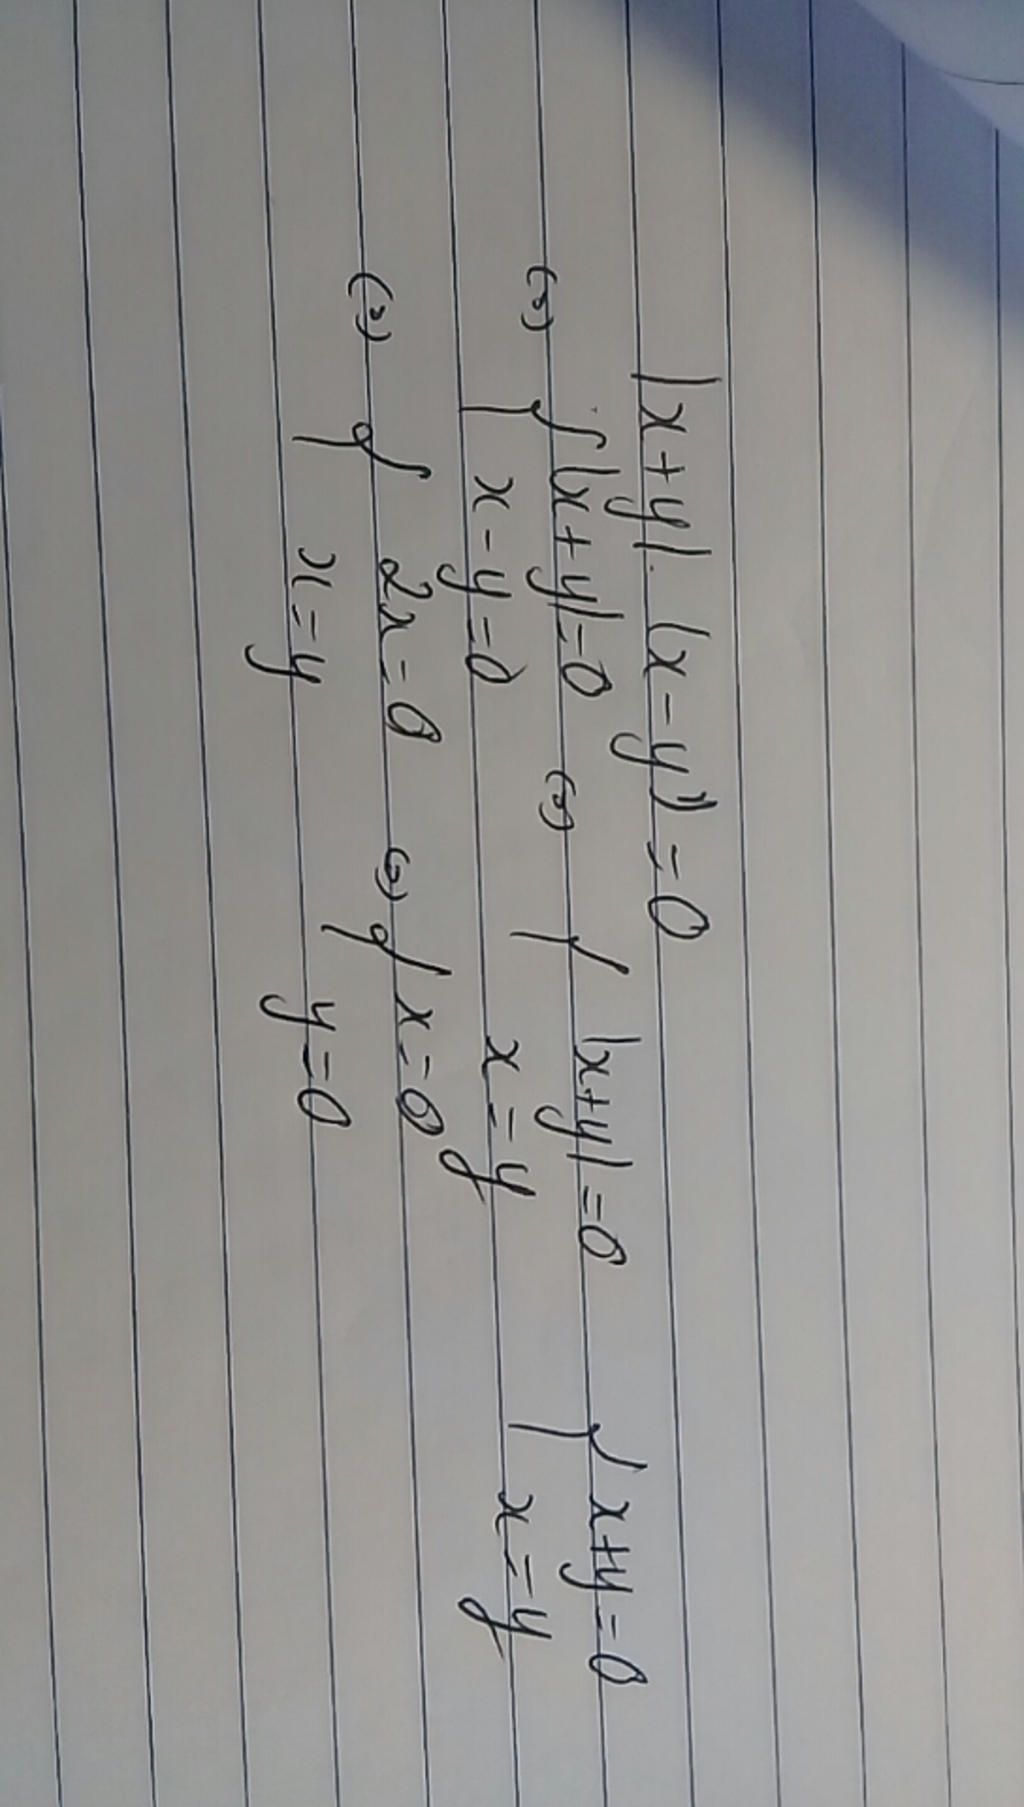 |x+y|. (x-y) = 0
(=) { |x+y|=0 (=) { |x+y|=0 { x+y=0
{ x-y=0 x=y { x=y
(=) { 2x=0 (=) { x=0
x=y y=0